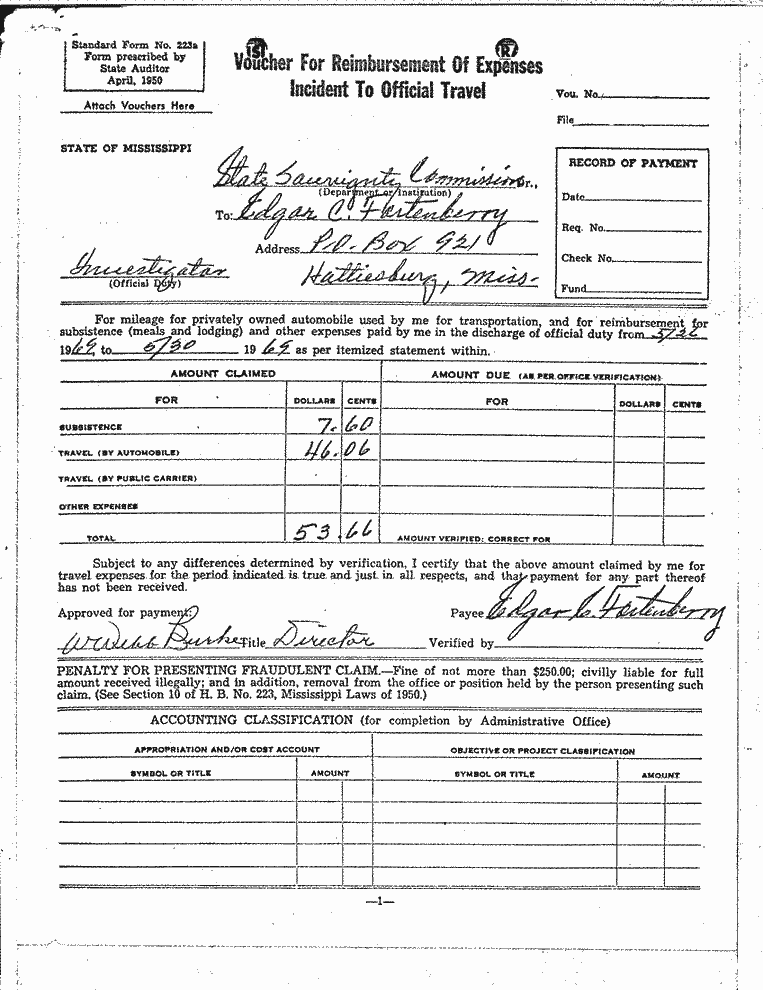 Standard Form No. 223a
Form prescribed by
State Auditor
April, 1950
Attach Vouchers Here
Voucher For Reimbursement Of Expenses
Incident To Official Travel
Vou. No.
File
STATE OF MISSISSIPPI
State Sovereignty Commission Dr.,
(Department or Institution)
To: Edgar C. Fortenberry
Address P.O. Box 921
Investigator
(Official Duty)
Hattiesburg, Miss.
RECORD OF PAYMENT
Date
Req. No.
Check No.
Fund
For mileage for privately owned automobile used by me for transportation, and for reimbursement for
subsistence (meals and lodging) and other expenses paid by me in the discharge of official duty from 5/26
1969, to 5/30 1969 as per itemized statement within.
AMOUNT CLAIMED AMOUNT DUE (AS PER OFFICE VERIFICATION)
FOR DOLLARS CENTS FOR DOLLARS CENTS
SUBSISTENCE 7.60
TRAVEL (BY AUTOMOBILE) 46.06
TRAVEL (BY PUBLIC CARRIER)
OTHER EXPENSES
TOTAL 53.66 AMOUNT VERIFIED; CORRECT FOR
Subject to any differences determined by verification, I certify that the above amount claimed by me for
travel expenses for the period indicated is true and just in all respects, and that payment for any part thereof
has not been received.
Approved for payment: Payee Edgar C. Fortenberry
W Webb Burke Title Director Verified by
PENALTY FOR PRESENTING FRAUDULENT CLAIM.—Fine of not more than $250.00; civilly liable for full
amount received illegally; and in addition, removal from the office or position held by the person presenting such
claim. (See Section 10 of H. B. No. 223, Mississippi Laws of 1950.)
ACCOUNTING CLASSIFICATION (for completion by Administrative Office)
APPROPRIATION AND/OR COST ACCOUNT OBJECTIVE OR PROJECT CLASSIFICATION
SYMBOL OR TITLE AMOUNT SYMBOL OR TITLE AMOUNT
—1—